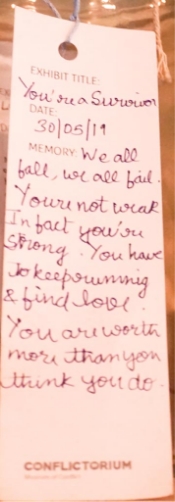 EXHIBIT TITLE:
You're a Survivor
DATE:
30/05/19
MEMORY: We all
fall, we all fail.
You're not weak
In fact you're
strong. You have
to keep running
& find love.
You are worth
more than you
think you do.
CONFLICTORIUM
Museum of Conflict